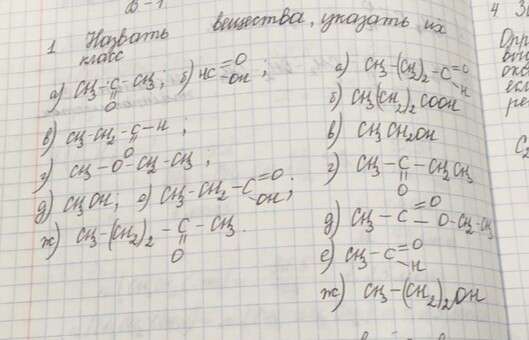 В-1
1. Назвать вещества, указать их
класс
а) CH3-C-CH3; б) HC=O
O OH;
в) CH3-CH2-C-H;
O
г) CH3-O-CH2-CH3;
д) CH3OH; е) CH3-CH2-C=O
OH;
ж) CH3-(CH2)2-C-CH3.
O
а) CH3-(CH2)2-C=O
H
б) CH3(CH2)2COOH
в) CH3CH2OH
г) CH3-C-CH2CH3
O
д) CH3-C=O
O-CH2-CH3
е) CH3-C=O
H
ж) CH3-(CH2)2OH
4.